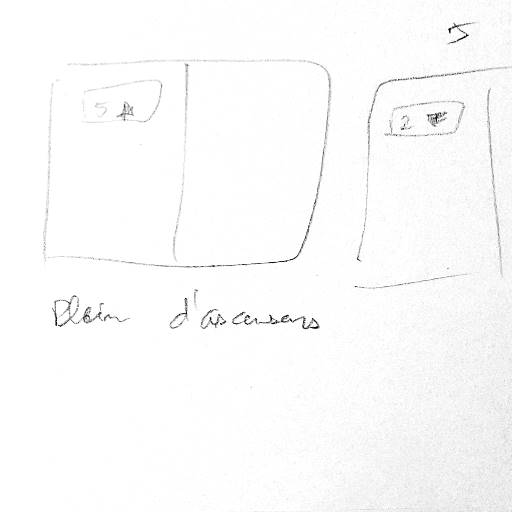 5
2
Plein d'ascenseurs